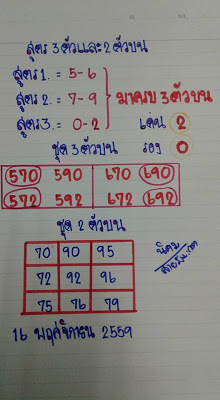 สูตร 3 ตัวและ 2 ตัวบน
สูตร 1. = 5-6
สูตร 2. = 7-9
มาครบ 3 ตัวบน
สูตร 3. = 0-2
เด่น 2
ชุด 3 ตัวบน
รอง 0
570 590 670 690
572 592 672 692
ชุด 2 ตัวบน
70 90 95
72 92 96
75 76 79
16 พฤศจิกายน 2559